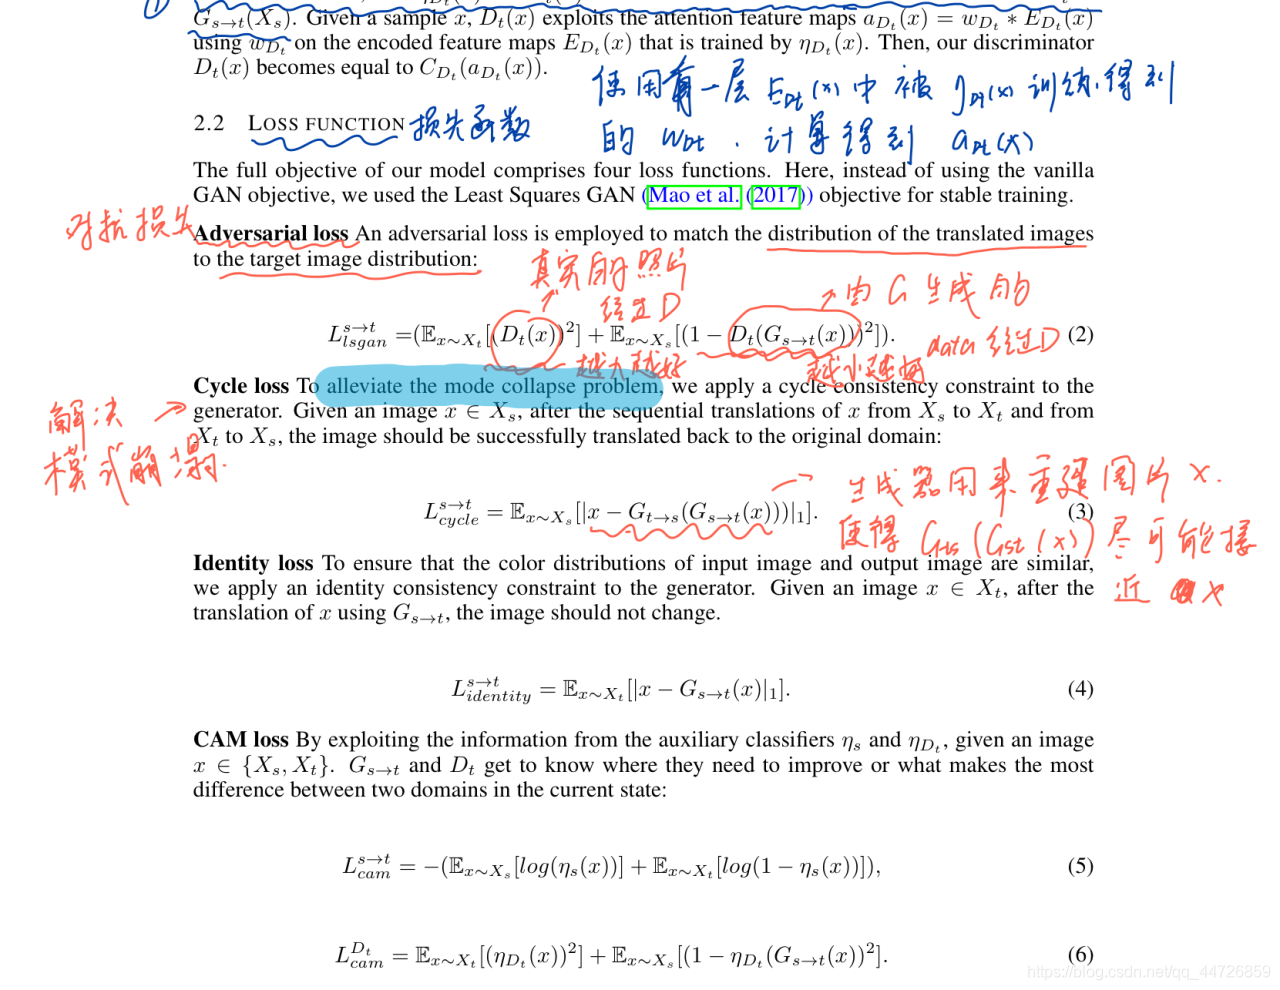 G_{s→t}(X_s). Given a sample x, D_t(x) exploits the attention feature maps a_{D_t}(x) = w_{D_t} ∗ E_{D_t}(x)
using w_{D_t} on the encoded feature maps E_{D_t}(x) that is trained by η_{D_t}(x). Then, our discriminator
D_t(x) becomes equal to C_{D_t}(a_{D_t}(x)).
使用前一层 E_{Dt}(x) 中被 η_{Dt}(x) 训练得到
的 w_{Dt}. 计算得到 a_{Dt}(x)
2.2 LOSS FUNCTION 损失函数
The full objective of our model comprises four loss functions. Here, instead of using the vanilla
GAN objective, we used the Least Squares GAN (Mao et al. (2017)) objective for stable training.
对抗损失
Adversarial loss An adversarial loss is employed to match the distribution of the translated images
to the target image distribution:
真实的照片
经过D
由G生成的
data 经过D
L_{lsgan}^{s→t} =(𝔼_{x∼X_t}[(D_t(x))^2] + 𝔼_{x∼X_s}[(1 − D_t(G_{s→t}(x)))^2]). (2)
越大越好
越小越好
Cycle loss To alleviate the mode collapse problem, we apply a cycle consistency constraint to the
generator. Given an image x ∈ X_s, after the sequential translations of x from X_s to X_t and from
X_t to X_s, the image should be successfully translated back to the original domain:
解决
模式崩溃.
生成器用来重建图片 x.
L_{cycle}^{s→t} = 𝔼_{x∼X_s}[|x − G_{t→s}(G_{s→t}(x)))|_1]. (3)
使得 G_{ts}(G_{st}(x)) 尽可能接
近 x
Identity loss To ensure that the color distributions of input image and output image are similar,
we apply an identity consistency constraint to the generator. Given an image x ∈ X_t, after the
translation of x using G_{s→t}, the image should not change.
L_{identity}^{s→t} = 𝔼_{x∼X_t}[|x − G_{s→t}(x)|_1]. (4)
CAM loss By exploiting the information from the auxiliary classifiers η_s and η_{D_t}, given an image
x ∈ {X_s, X_t}. G_{s→t} and D_t get to know where they need to improve or what makes the most
difference between two domains in the current state:
L_{cam}^{s→t} = −(𝔼_{x∼X_s}[log(η_s(x))] + 𝔼_{x∼X_t}[log(1 − η_s(x))]), (5)
L_{cam}^{D_t} = 𝔼_{x∼X_t}[(η_{D_t}(x))^2] + 𝔼_{x∼X_s}[(1 − η_{D_t}(G_{s→t}(x))^2]. (6)
https://blog.csdn.net/qq_44726859